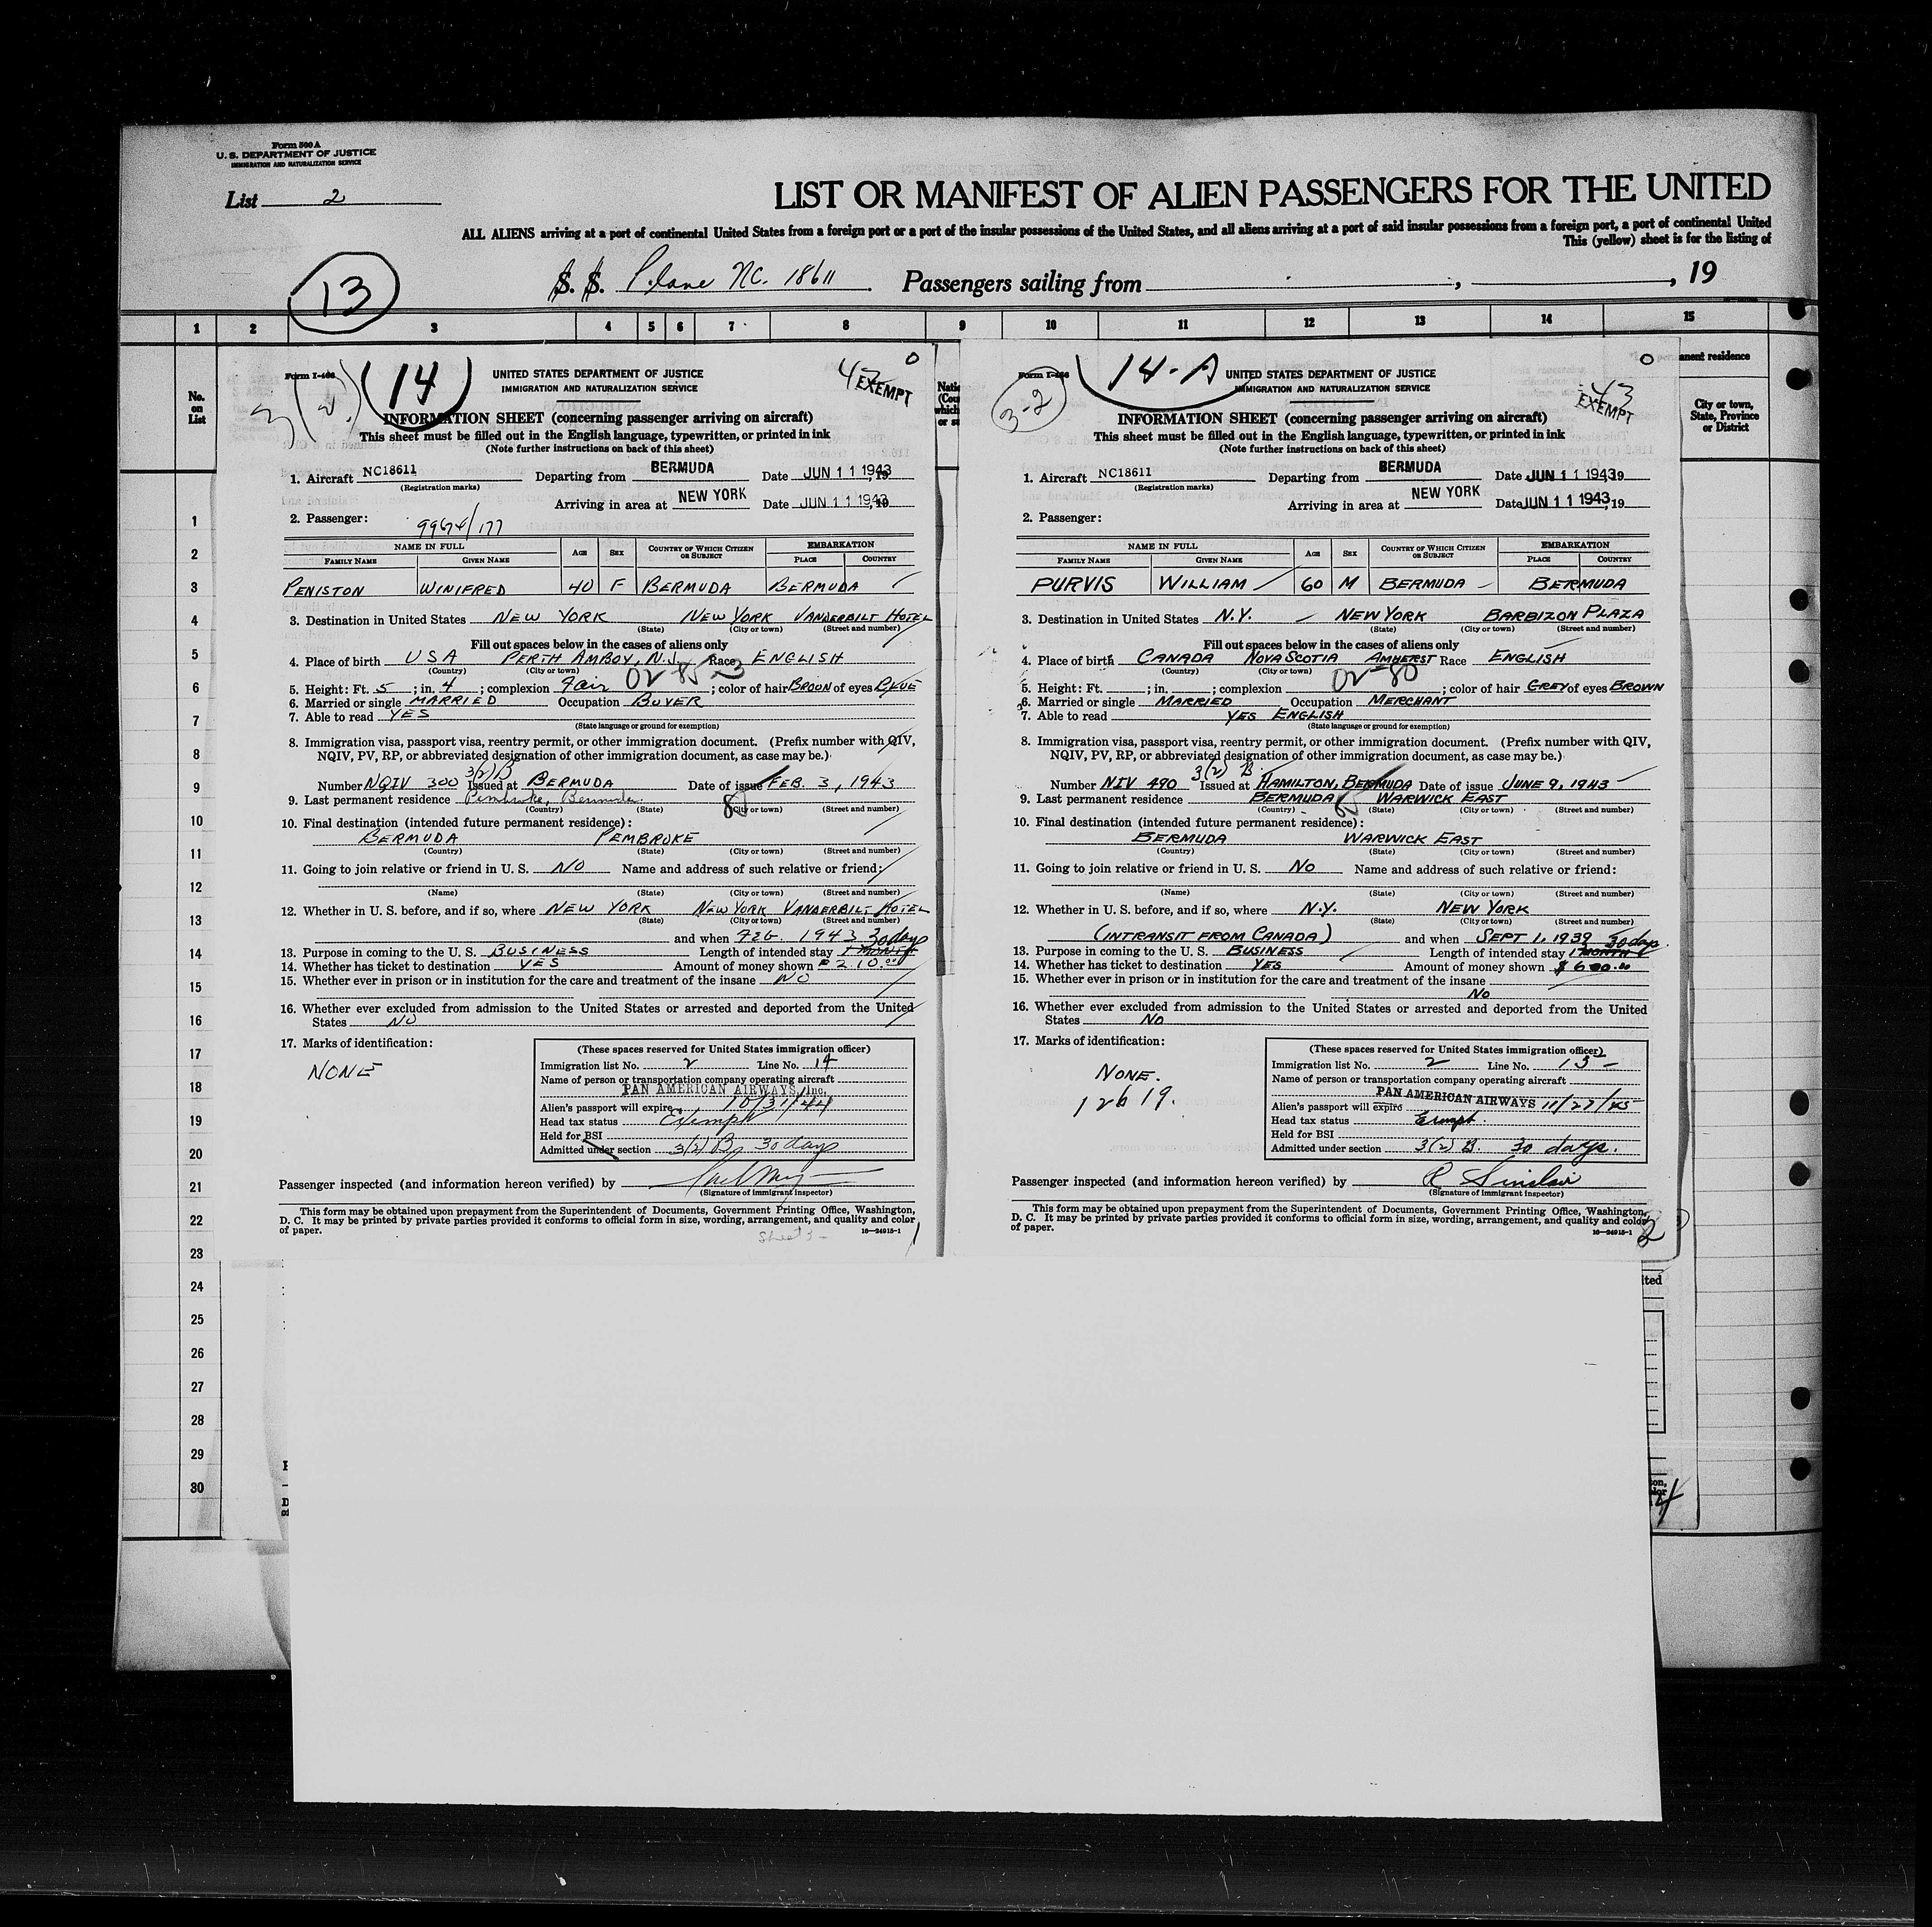 Form 500 A
U. S. DEPARTMENT OF JUSTICE
IMMIGRATION AND NATURALIZATION SERVICE
List 2
LIST OR MANIFEST OF ALIEN PASSENGERS FOR THE UNITED
ALL ALIENS arriving at a port of continental United States from a foreign port or a port of the insular possessions of the United States, and all aliens arriving at a port of said insular possessions from a foreign port, a port of continental United
This (yellow) sheet is for the listing of
13
S. S. Plane NC. 18611 Passengers sailing from , , 19
1 2 3 4 5 6 7 8 9 10 11 12 13 14 15
No. on List
anent residence
City or town, State, Province or District
1
2
3
4
5
6
7
8
9
10
11
12
13
14
15
16
17
18
19
20
21
22
23
24
25
26
27
28
29
30
14
43
EXEMPT
UNITED STATES DEPARTMENT OF JUSTICE
IMMIGRATION AND NATURALIZATION SERVICE
INFORMATION SHEET (concerning passenger arriving on aircraft)
This sheet must be filled out in the English language, typewritten, or printed in ink
(Note further instructions on back of this sheet)
1. Aircraft NC18611 Departing from BERMUDA Date JUN 11 1943, 19
(Registration marks)
Arriving in area at NEW YORK Date JUN 11 1943, 19
2. Passenger:
NAME IN FULL AGE SEX COUNTRY OF WHICH CITIZEN OR SUBJECT EMBARKATION
FAMILY NAME GIVEN NAME PLACE COUNTRY
PENISTON WINIFRED 40 F BERMUDA BERMUDA
3. Destination in United States NEW YORK NEW YORK VANDERBILT HOTEL
(State) (City or town) (Street and number)
Fill out spaces below in the cases of aliens only
4. Place of birth USA PERTH AMBOY, N.J. Race ENGLISH
(Country) (City or town)
5. Height: Ft. 5; in. 4; complexion Fair; color of hair BROON of eyes BLUE
6. Married or single MARRIED Occupation BUYER
7. Able to read YES
(State language or ground for exemption)
8. Immigration visa, passport visa, reentry permit, or other immigration document. (Prefix number with QIV,
NQIV, PV, RP, or abbreviated designation of other immigration document, as case may be.)
3(2)B
Number NQIV 300 Issued at BERMUDA Date of issue FEB. 3, 1943
9. Last permanent residence Pembroke, Bermuda
(Country) (State) (City or town) (Street and number)
10. Final destination (intended future permanent residence):
BERMUDA PEMBROKE
(Country) (State) (City or town) (Street and number)
11. Going to join relative or friend in U. S. NO Name and address of such relative or friend:
(Name) (State) (City or town) (Street and number)
12. Whether in U. S. before, and if so, where NEW YORK NEW YORK VANDERBILT HOTEL
(State) (City or town) (Street and number)
and when FEB. 1943 30 days
13. Purpose in coming to the U. S. BUSINESS Length of intended stay 1 MONTH
14. Whether has ticket to destination YES Amount of money shown $210.00
15. Whether ever in prison or in institution for the care and treatment of the insane NO
16. Whether ever excluded from admission to the United States or arrested and deported from the United
States NO
17. Marks of identification:
NONE
(These spaces reserved for United States immigration officer)
Immigration list No. 2 Line No. 14
Name of person or transportation company operating aircraft
PAN AMERICAN AIRWAYS, Inc.
Alien's passport will expire 10/31/44
Head tax status Exempt
Held for BSI
Admitted under section 3(2) B 30 days
Passenger inspected (and information hereon verified) by
(Signature of immigrant inspector)
This form may be obtained upon prepayment from the Superintendent of Documents, Government Printing Office, Washington,
D. C. It may be printed by private parties provided it conforms to official form in size, wording, arrangement, and quality and color
of paper.
Sheet 3
16—24915-1
14-A
3-2
43
EXEMPT
UNITED STATES DEPARTMENT OF JUSTICE
IMMIGRATION AND NATURALIZATION SERVICE
INFORMATION SHEET (concerning passenger arriving on aircraft)
This sheet must be filled out in the English language, typewritten, or printed in ink
(Note further instructions on back of this sheet)
1. Aircraft NC18611 Departing from BERMUDA Date JUN 11 1943, 19
(Registration marks)
Arriving in area at NEW YORK Date JUN 11 1943, 19
2. Passenger:
NAME IN FULL AGE SEX COUNTRY OF WHICH CITIZEN OR SUBJECT EMBARKATION
FAMILY NAME GIVEN NAME PLACE COUNTRY
PURVIS WILLIAM 60 M BERMUDA BERMUDA
3. Destination in United States N.Y. NEW YORK BARBIZON PLAZA
(State) (City or town) (Street and number)
Fill out spaces below in the cases of aliens only
4. Place of birth CANADA NOVA SCOTIA AMHERST Race ENGLISH
(Country) (City or town)
5. Height: Ft. ; in. ; complexion ; color of hair GREY of eyes BROWN
6. Married or single MARRIED Occupation MERCHANT
7. Able to read YES ENGLISH
(State language or ground for exemption)
8. Immigration visa, passport visa, reentry permit, or other immigration document. (Prefix number with QIV,
NQIV, PV, RP, or abbreviated designation of other immigration document, as case may be.)
3(2) B.
Number NIV 490 Issued at HAMILTON, BERMUDA Date of issue JUNE 9, 1943
9. Last permanent residence BERMUDA WARWICK EAST
(Country) (State) (City or town) (Street and number)
10. Final destination (intended future permanent residence):
BERMUDA WARWICK EAST
(Country) (State) (City or town) (Street and number)
11. Going to join relative or friend in U. S. NO Name and address of such relative or friend:
(Name) (State) (City or town) (Street and number)
12. Whether in U. S. before, and if so, where N.Y. NEW YORK
(State) (City or town) (Street and number)
(INTRANSIT FROM CANADA) and when SEPT 1, 1939 30 days.
13. Purpose in coming to the U. S. BUSINESS Length of intended stay 1 MONTH
14. Whether has ticket to destination YES Amount of money shown $600.00
15. Whether ever in prison or in institution for the care and treatment of the insane
NO
16. Whether ever excluded from admission to the United States or arrested and deported from the United
States NO
17. Marks of identification:
NONE.
12619.
(These spaces reserved for United States immigration officer)
Immigration list No. 2 Line No. 15
Name of person or transportation company operating aircraft
PAN AMERICAN AIRWAYS
Alien's passport will expire 11/27/45
Head tax status Exempt.
Held for BSI
Admitted under section 3(2) B. 30 days.
Passenger inspected (and information hereon verified) by R Sinclair
(Signature of immigrant inspector)
This form may be obtained upon prepayment from the Superintendent of Documents, Government Printing Office, Washington,
D. C. It may be printed by private parties provided it conforms to official form in size, wording, arrangement, and quality and color
of paper.
16—24915-1
2
4